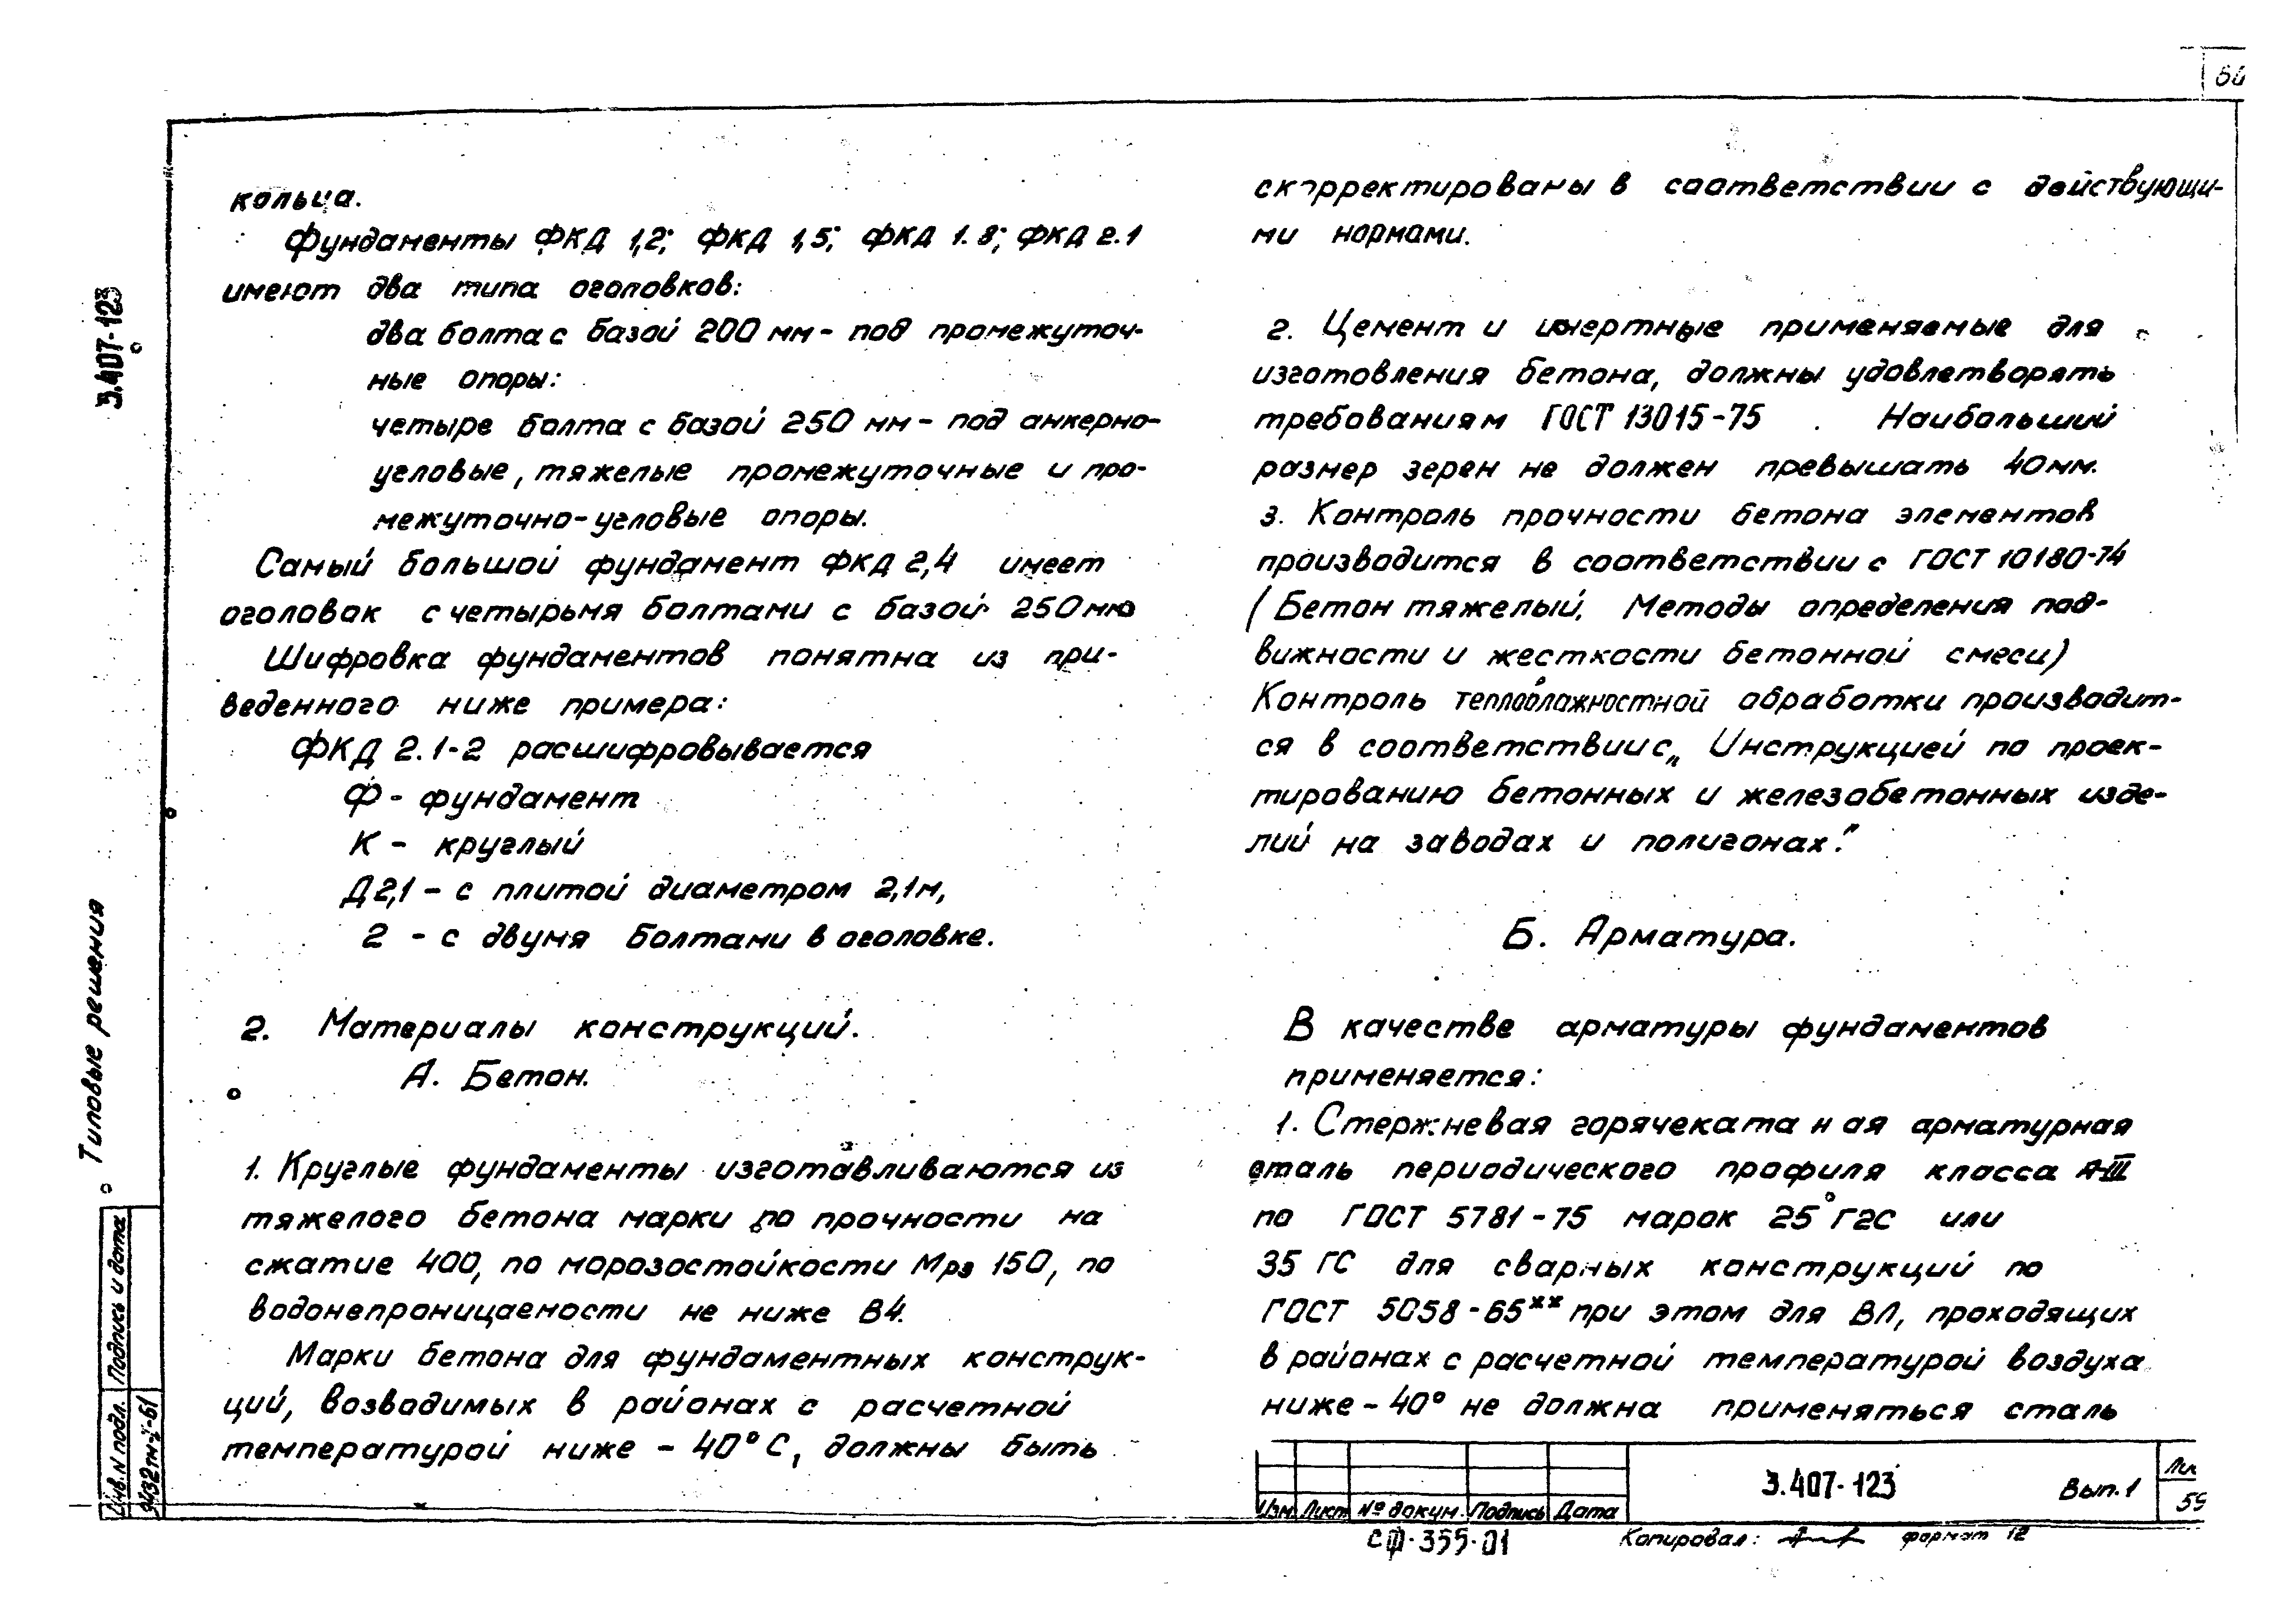 кольца.
Фундаменты ФКД 1,2; ФКД 1,5; ФКД 1.8; ФКД 2.1
имеют два типа оголовков:
два болта с базой 200 мм - под промежуточ-
ные опоры:
четыре болта с базой 250 мм - под анкерно-
угловые, тяжелые промежуточные и про-
межуточно-угловые опоры.
Самый большой фундамент ФКД 2,4 имеет
оголовок с четырьмя болтами с базой 250мм
Шифровка фундаментов понятна из при-
веденного ниже примера:
ФКД 2.1-2 расшифровывается
Ф - фундамент
К - круглый
Д2,1 - с плитой диаметром 2,1м,
2 - с двумя болтами в оголовке.
2. Материалы конструкций.
А. Бетон.
1. Круглые фундаменты изготавливаются из
тяжелого бетона марки по прочности на
сжатие 400, по морозостойкости Мрз 150, по
водонепроницаемости не ниже В4.
Марки бетона для фундаментных конструк-
ций, возводимых в районах с расчетной
температурой ниже - 40°С, должны быть
скорректированы в соответствии с действующи-
ми нормами.
2. Цемент и инертные применяемые для
изготовления бетона, должны удовлетворять
требованиям ГОСТ 13015-75 . Наибольший
размер зерен не должен превышать 40мм.
3. Контроль прочности бетона элементов
производится в соответствии с ГОСТ 10180-74
(Бетон тяжелый. Методы определения под-
вижности и жесткости бетонной смеси)
Контроль тепловлажностной обработки производит-
ся в соответствии с „Инструкцией по проек-
тированию бетонных и железобетонных изде-
лий на заводах и полигонах."
Б. Арматура.
В качестве арматуры фундаментов
применяется:
1. Стержневая горячекатаная арматурная
сталь периодического профиля класса А-III
по ГОСТ 5781-75 марок 25 Г2С или
35 ГС для сварных конструкций по
ГОСТ 5058-65** при этом для ВЛ, проходящих
в районах с расчетной температурой воздуха
ниже - 40° не должна применяться сталь
3.407-123
Типовые решения
Подпись и дата
Инв. N подл.
Изм. Лист № докум. Подпись Дата
3.407-123
Вып. 1
59
СФ-355-01
Копировал:
формат 12